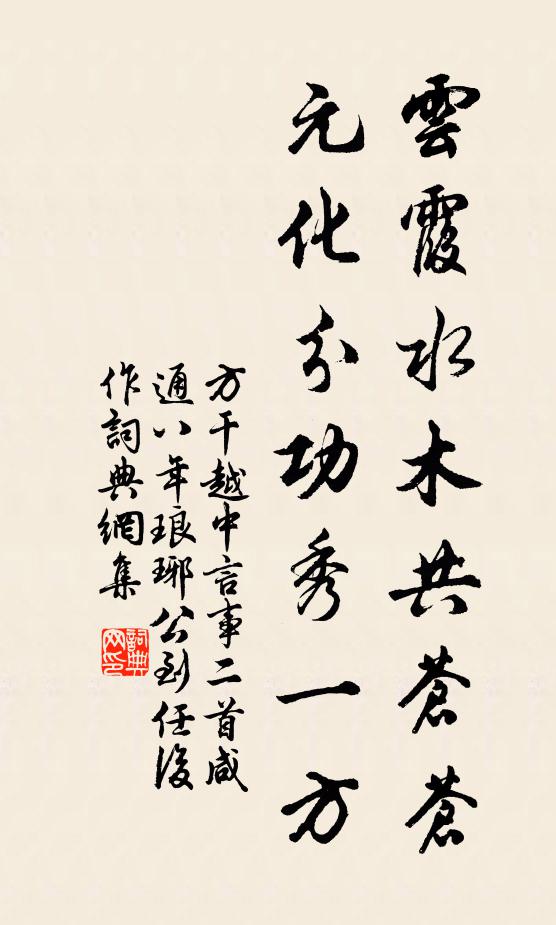 雲霞水木共蒼蒼
元化分功秀一方
方干越中言事二首咸
通八年琅琊公到任後
作詞典網集
詞典網印